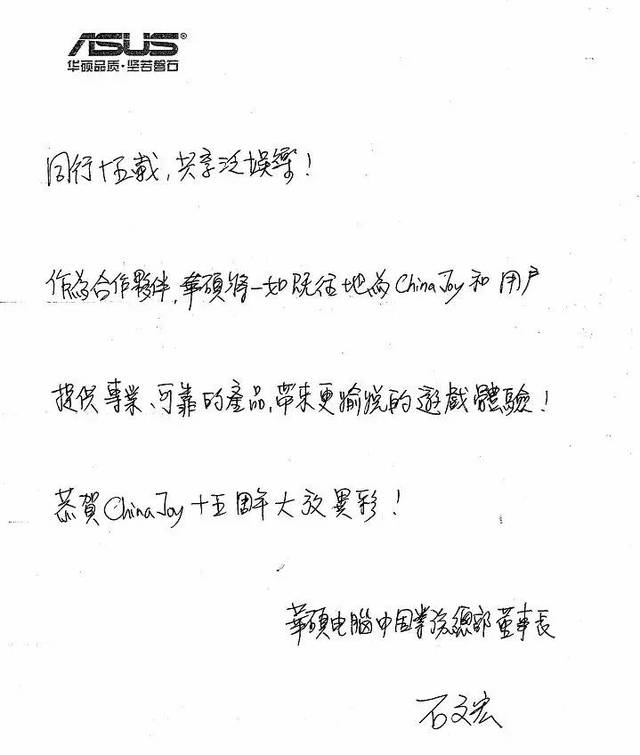 ASUS®
华硕品质·坚若磐石
同行十五載,共享泛娛樂!
作為合作夥伴,華碩將一如既往地為ChinaJoy和用户
提供專業、可靠的產品,帶來更愉悅的遊戲體驗!
恭賀ChinaJoy十五周年大放異彩!
華碩电腦中国業務總部董事長
石文宏